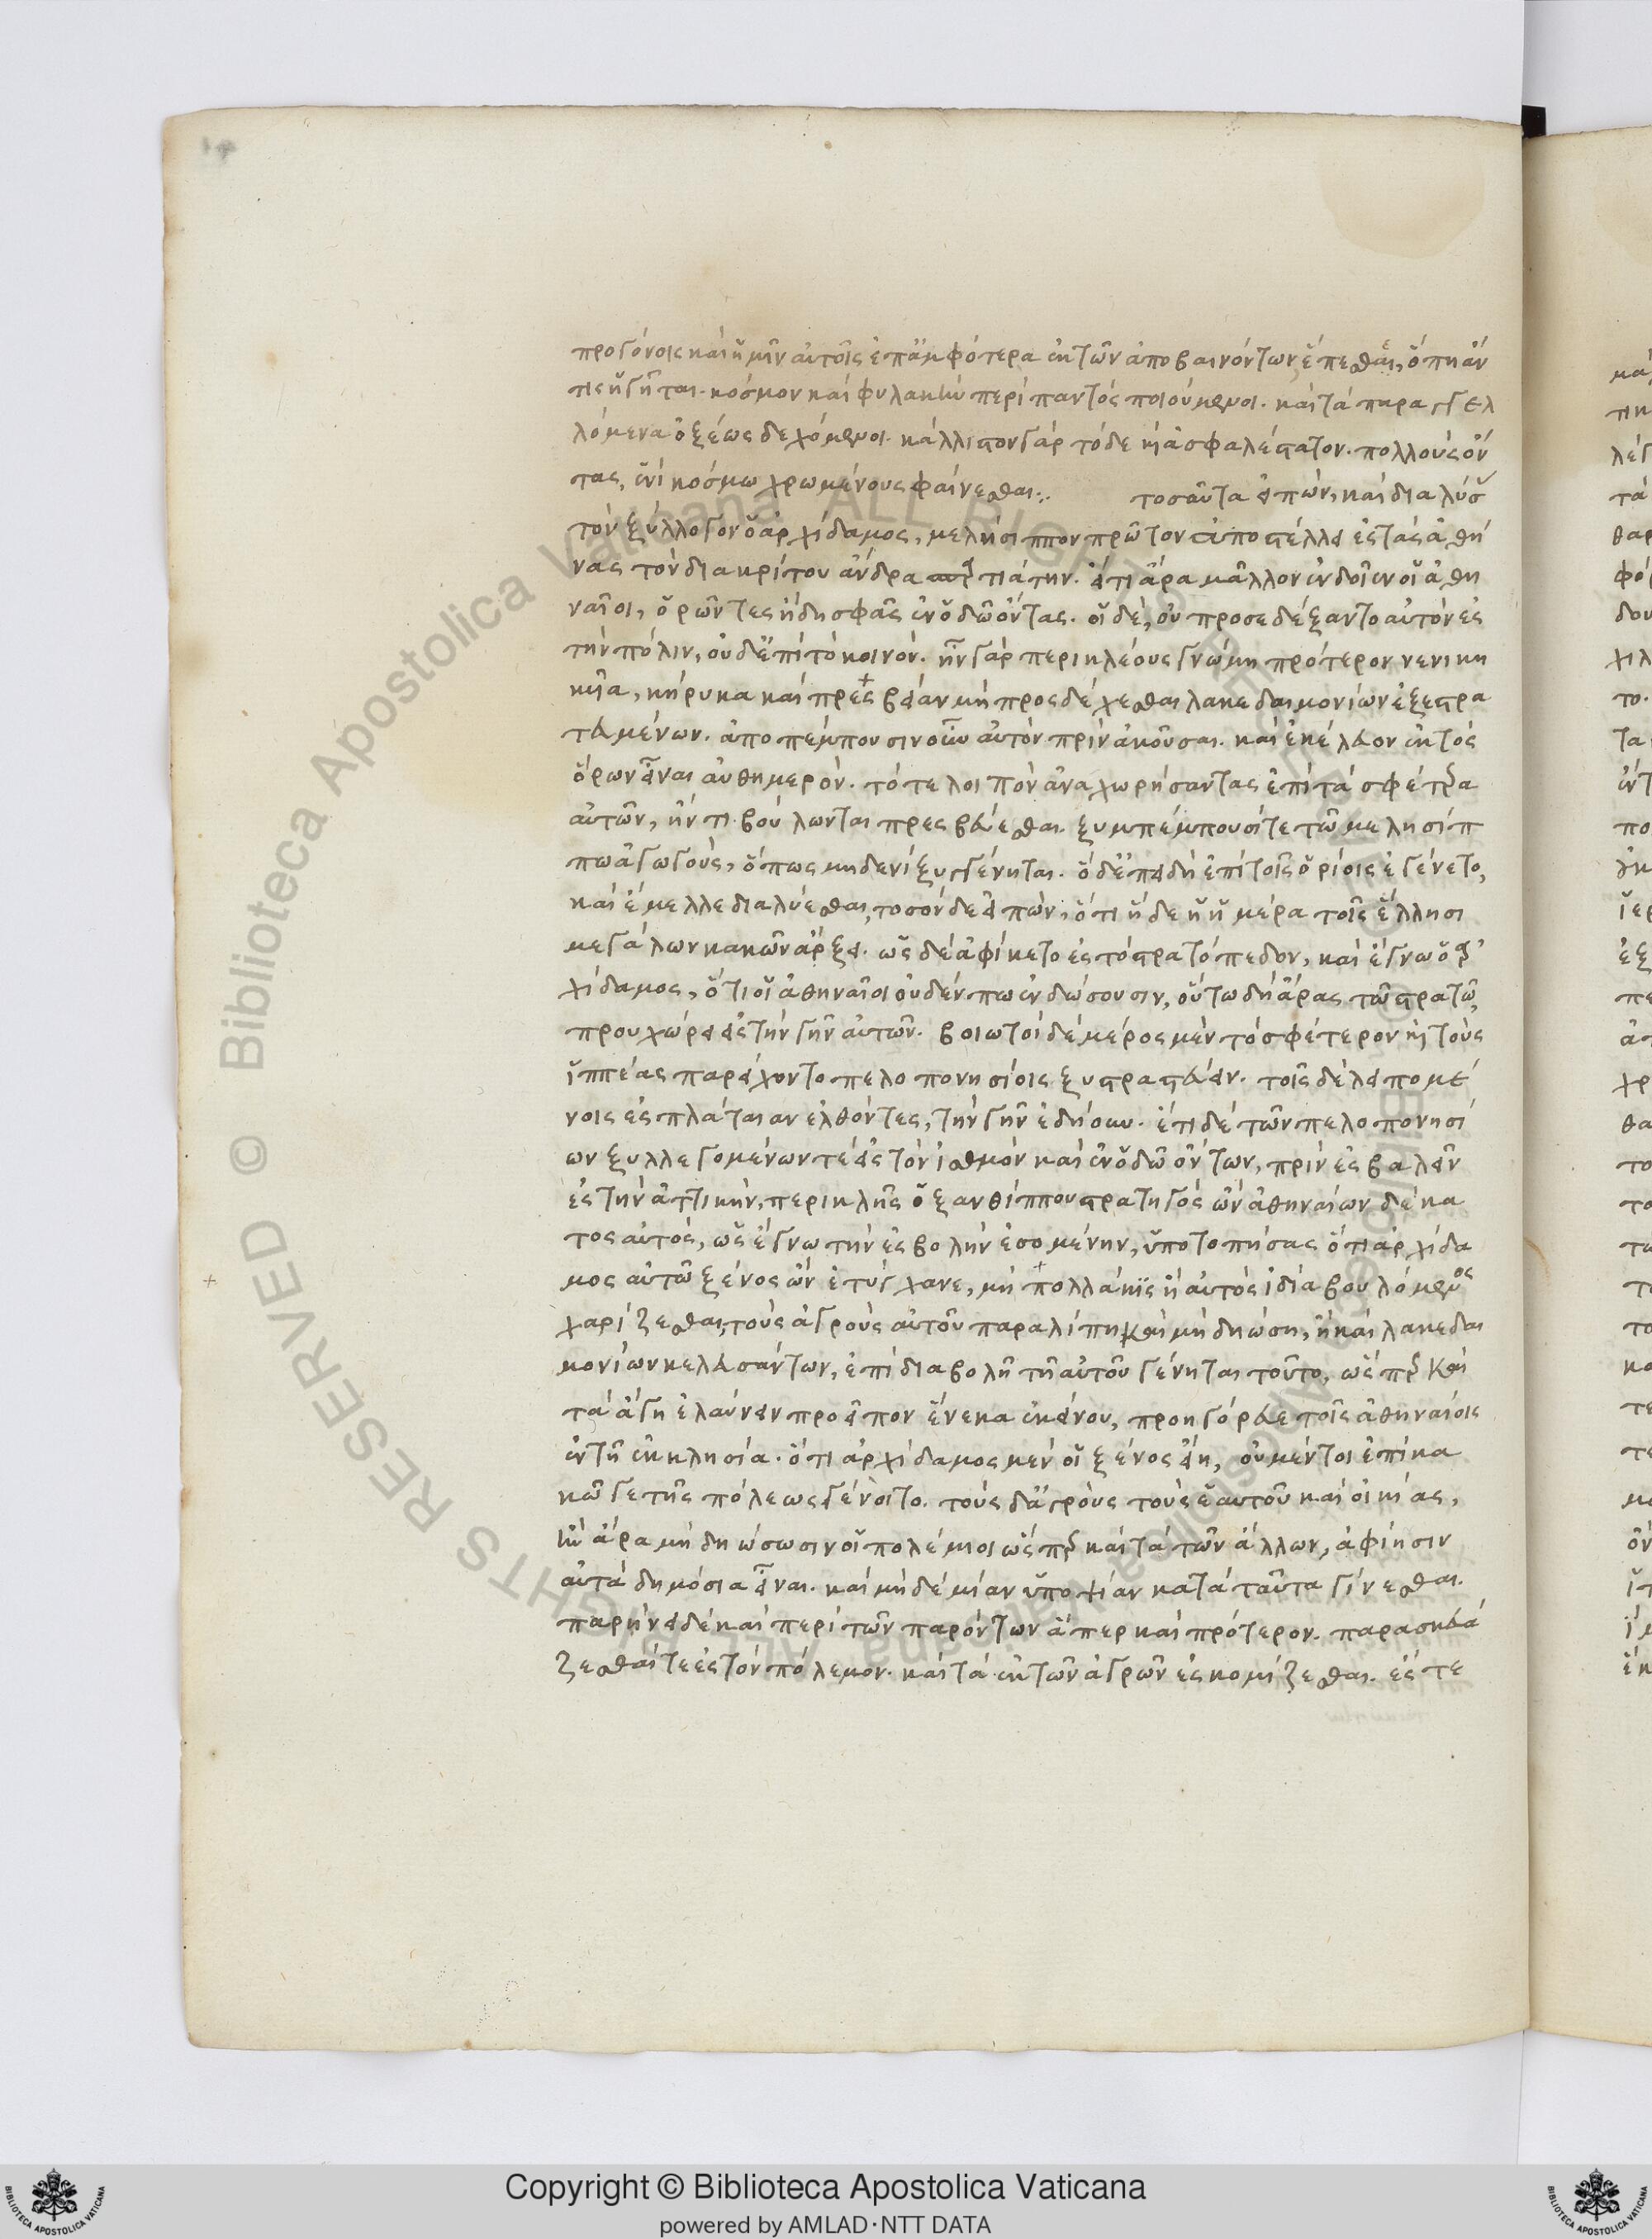 προγόνοις καὶ ἡμῖν αὐτοῖς ἐπ' ἀμφότερα ἐκ τῶν ἀποβαινόντων, ἕπεσθαι, ὅπη ἄν
τις ἡγῆται. κόσμον καὶ φυλακὴν περὶ παντὸς ποιούμενοι. καὶ τὰ παραγγελ
λόμενα ὀξέως δεχόμενοι. κάλλιστον γὰρ τόδε καὶ ἀσφαλέστατον. πολλοὺς ὄν
τας, ἑνὶ κόσμω χρωμένους φαίνεσθαι:. τοσαῦτα εἰπὼν, καὶ διαλύσ
τὸν ξύλλογον ὁ ἀρχίδαμος, μελήσιππον πρῶτον ἀποστέλλει ἐς τὰς ἀθή
νας τὸν διακρίτου ἄνδρα σπρτιάτην. εἴ τι ἄρα μᾶλλον ἐνδοῖεν οἱ ἀθη
ναῖοι, ὁρῶντες ἤδη σφᾶς ἐν ὁδῶ ὄντας. οἱ δὲ, οὐ προσεδέξαντο αὐτὸν ἐς
τὴν πόλιν, οὐδ' ἐπὶ τὸ κοινόν. ἦν γὰρ περικλέους γνώμη πρότερον νενικη
κῖα, κήρυκα καὶ πρεσβείαν μὴ προσδέχεσθαι λακεδαιμονίων ἐξεστρα
τευμένων. ἀποπέμπουσιν οὖν αὐτὸν πρὶν ἀκοῦσαι. καὶ ἐκέλευον ἐκτὸς
ὅρων εἶναι αὐθημερόν. τό τε λοιπὸν ἀναχωρήσαντας ἐπὶ τὰ σφέτρα
αὐτῶν, ἤν τι βούλωνται πρεσβεύεσθαι. ξυμπέμπουσί τε τῶ μελησίπ
πω ἀγωγοὺς, ὅπως μηδενὶ ξυγγένηται. ὁ δ' ἐπειδὴ ἐπὶ τοῖς ὁρίοις ἐγένετο,
καὶ ἔμελλε διαλύεσθαι, τοσόνδε εἰπὼν, ὅτι ἥδε ἡ ἡμέρα τοῖς ἕλλησι
μεγάλων κακῶν ἄρξει. ὡς δὲ ἀφίκετο ἐς τὸ στρατόπεδον, καὶ ἔγνω ὁ ἀρ
χίδαμος, ὅτι οἱ ἀθηναῖοι οὐδέν πω ἐνδώσουσιν, οὕτω δὴ ἄρας τῶ στρατῶ,
προυχώρει ἐς τὴν γῆν αὐτῶν. βοιωτοὶ δὲ μέρος μὲν τὸ σφέτερον καὶ τοὺς
ἱππέας παρείχοντο πελοπονησίοις ξυστρατεύειν. τοῖς δὲ λειπομέ
νοις ἐς πλάταιαν ἐλθόντες, τὴν γῆν ἐδήουν. ἔτι δὲ τῶν πελοπονησί
ων ξυλλεγομένων τε ἐς τὸν ἰσθμὸν καὶ ἐν ὁδῶ ὄντων, πρὶν ἐσβαλεῖν
ἐς τὴν ἀττικὴν, περικλῆς ὁ ξανθίππου στρατηγὸς ὢν ἀθηναίων δέκα
τος αὐτὸς, ὡς ἔγνω τὴν ἐσβολὴν ἐσομένην, ὑποτοπήσας ὅτι ἀρχίδα
μος αὐτῶ ξένος ὢν ἐτύγχανε, μὴ πολλάκις ἢ αὐτὸς ἰδία βουλόμενος
χαρίζεσθαι, τοὺς ἀγροὺς αὐτοῦ παραλίπη καὶ μὴ δηώση, ἢ καὶ λακεδαι
μονίων κελευσάντων, ἐπὶ διαβολῆ τῆ αὐτοῦ γένηται τοῦτο, ὥσπρ καὶ
τὰ ἄγη ἐλαύνειν προεῖπον ἕνεκα ἐκείνου, προηγόρευε τοῖς ἀθηναίοις
ἐν τῆ ἐκκλησία. ὅτι ἀρχίδαμος μὲν οἱ ξένος εἴη, οὐ μέντοι ἐπὶ κα
κῶ γε τῆς πόλεως γένοιτο. τοὺς δ' ἀγροὺς τοὺς ἑαυτοῦ καὶ οἰκίας,
ἢν ἄρα μὴ δηώσωσιν οἱ πολέμιοι ὥσπρ καὶ τὰ τῶν ἄλλων, ἀφίησιν
αὐτὰ δημόσια εἶναι. καὶ μηδεμίαν ὑποψίαν κατὰ ταῦτα γίνεσθαι.
παρήνει δὲ καὶ περὶ τῶν παρόντων ἅπερ καὶ πρότερον. παρασκευά
ζεσθαί τε ἐς τὸν πόλεμον. καὶ τὰ ἐκ τῶν ἀγρῶν ἐσκομίζεσθαι. ἔς τε
Copyright © Biblioteca Apostolica Vaticana
powered by AMLAD·NTT DATA